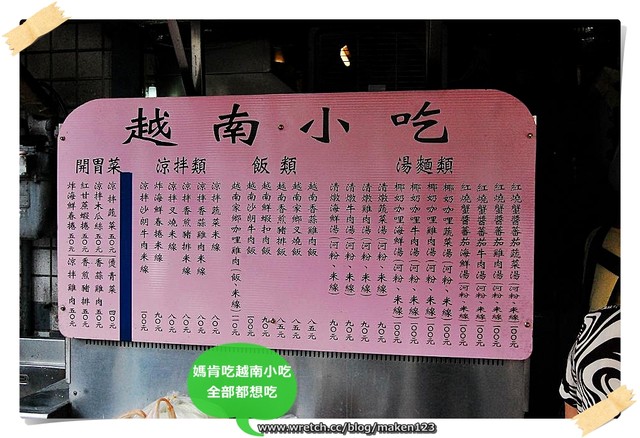 越南小吃
開胃菜
涼拌類
飯類
湯麵類
紅燒蟹醬蕃茄蔬菜湯(河粉、米線)一00元
紅燒蟹醬蕃茄雞肉湯(河粉、米線)一00元
紅燒蟹醬蕃茄牛肉湯(河粉、米線)一00元
紅燒蟹醬蕃茄海鮮湯(河粉、米線)一00元
椰奶咖哩蔬菜湯(河粉、米線)一00元
椰奶咖哩雞肉湯(河粉、米線)一00元
椰奶咖哩牛肉湯(河粉、米線)一00元
椰奶咖哩海鮮湯(河粉、米線)一00元
清燉蔬菜湯(河粉、米線)九0元
清燉雞肉湯(河粉、米線)九0元
清燉牛肉湯(河粉、米線)九0元
清燉海鮮湯(河粉、米線)九0元
越南香蒜雞肉飯 八五元
越南家鄉叉燒飯 八五元
越南香煎豬排飯 八五元
越南鮮蝦扣肉飯 九0元
越南沙朗牛肉飯 一00元
越南家鄉咖哩雞肉(飯、米線)一二0元
涼拌蔬菜米線 八0元
涼拌香蒜雞肉米線 八0元
涼拌香煎豬排米線 八0元
涼拌叉燒米線 八0元
炸海鮮春捲米線 九0元
涼拌沙朗牛肉米線 一00元
涼拌蔬菜五0元 燙青菜 四0元
涼拌木瓜絲五0元 香蒜雞肉 五0元
紅甘蔗蝦捲五0元 香煎豬排 五0元
炸海鮮春捲五0元 涼拌雞肉 五0元
媽肯吃越南小吃
全部都想吃
www.wretch.cc/blog/maken123